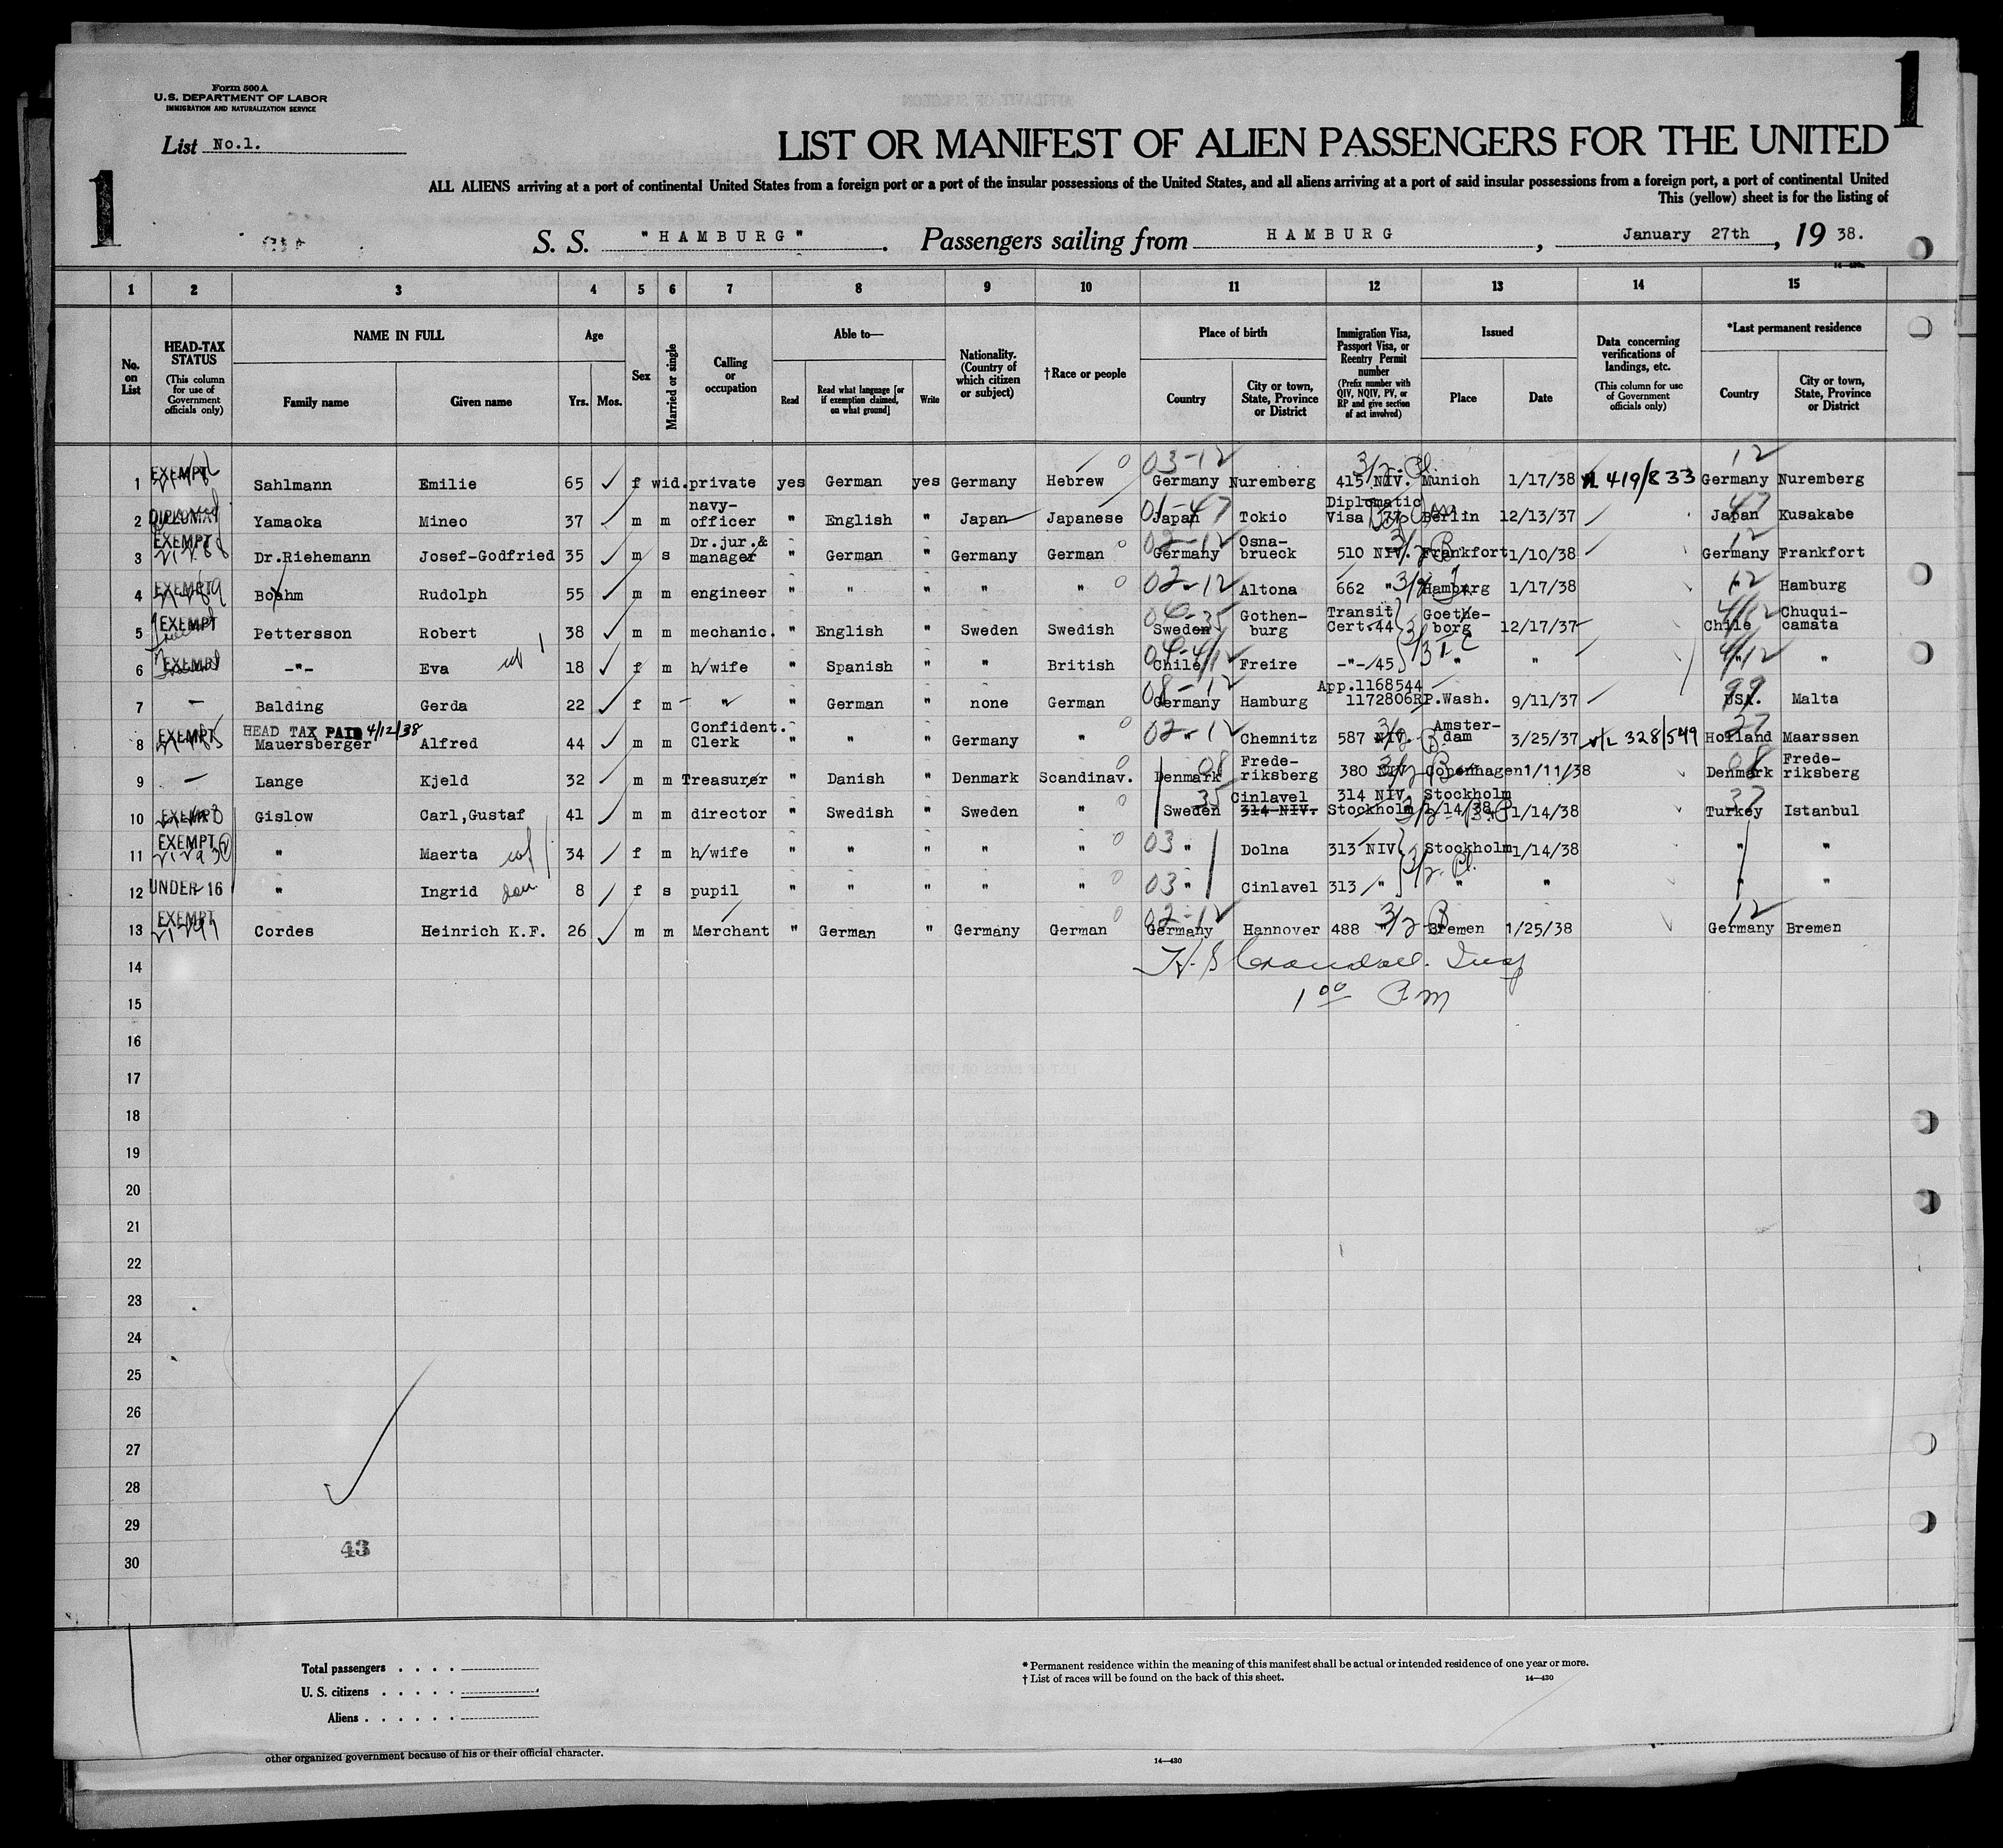 1
Form 500 A
U.S. DEPARTMENT OF LABOR
IMMIGRATION AND NATURALIZATION SERVICE
List No.1.
LIST OR MANIFEST OF ALIEN PASSENGERS FOR THE UNITED
1
ALL ALIENS arriving at a port of continental United States from a foreign port or a port of the insular possessions of the United States, and all aliens arriving at a port of said insular possessions from a foreign port, a port of continental United
This (yellow) sheet is for the listing of
S. S. "HAMBURG". Passengers sailing from HAMBURG, January 27th, 19 38.
1 2 3 4 5 6 7 8 9 10 11 12 13 14 15
No. on List
HEAD-TAX STATUS (This column for use of Government officials only)
NAME IN FULL
Family name Given name
Age
Yrs. Mos.
Sex
Married or single
Calling or occupation
Able to—
Read Read what language [or if exemption claimed, on what ground] Write
Nationality. (Country of which citizen or subject)
†Race or people
Place of birth
Country City or town, State, Province or District
Immigration Visa, Passport Visa, or Reentry Permit number (Prefix number with QIV, NQIV, PV, or RP and give section of act involved)
Issued
Place Date
Data concerning verifications of landings, etc. (This column for use of Government officials only)
*Last permanent residence
Country City or town, State, Province or District
1 EXEMPT Sahlmann Emilie 65 f wid. private yes German yes Germany Hebrew 03-12 Germany Nuremberg 415 NIV. 3/2 Munich 1/17/38 419/833 12 Germany Nuremberg
2 DIPLOMAT Yamaoka Mineo 37 m m navy-officer " English " Japan Japanese 01-47 Japan Tokio Diplomatic Visa 77 Berlin 12/13/37 47 Japan Kusakabe
3 EXEMPT Dr.Riehemann Josef-Godfried 35 m s Dr.jur.& manager " German " Germany German 02-12 Germany Osna-brueck 510 NIV. 3/2 B Frankfort 1/10/38 12 Germany Frankfort
4 EXEMPT Boehm Rudolph 55 m m engineer " " " " " 02-12 Altona 662 " 3/2 Hamburg 1/17/38 12 " Hamburg
5 EXEMPT Pettersson Robert 38 m m mechanic. " English " Sweden Swedish 04-35 Sweden Gothen-burg Transit Cert.44 Goethe-borg 12/17/37 4/12 Chile Chuqui-camata
6 EXEMPT -"- Eva wf 18 f m h/wife " Spanish " " British Chile Freire -"-/45 " " 4/12 " "
7 — Balding Gerda 22 f m " " German " none German 08-12 Germany Hamburg App.1168544 1172806RP.Wash. 9/11/37 99 USA. Malta
HEAD TAX PAID 4/12/38
8 EXEMPT Mauersberger Alfred 44 m m Confident. Clerk " " " Germany " 02-12 " Chemnitz 587 NIV. 3/2 B Amster-dam 3/25/37 v/L 328/549 27 Holland Maarssen
9 — Lange Kjeld 32 m m Treasurer " Danish " Denmark Scandinav. 08 Denmark Frede-riksberg 380 NIV 3/2 B Copenhagen 1/11/38 08 Denmark Frede-riksberg
10 EXEMPT Gislow Carl,Gustaf 41 m m director " Swedish " Sweden " 35 Sweden Cinlavel 314 NIV. 314 NIV. Stockholm Stockholm 1/14/38 1/14/38 37 Turkey Istanbul
11 EXEMPT " Maerta wf 34 f m h/wife " " " " " 03 " Dolna 313 NIV Stockholm 1/14/38 " "
12 UNDER 16 " Ingrid dau 8 f s pupil " " " " " 03 " Cinlavel 313 " 3/2 Pl. " " " "
13 EXEMPT Cordes Heinrich K.F. 26 m m Merchant " German " Germany German 02-12 Germany Hannover 488 " 3/2 B Bremen 1/25/38 12 Germany Bremen
14 H. S Crandall. Insp
15 1 00 P.m
16
17
18
19
20
21
22
23
24
25
26
27
28
29
30
43
Total passengers . . . .
U. S. citizens . . . . .
Aliens . . . . . .
* Permanent residence within the meaning of this manifest shall be actual or intended residence of one year or more.
† List of races will be found on the back of this sheet.
14—430
other organized government because of his or their official character.
14—430